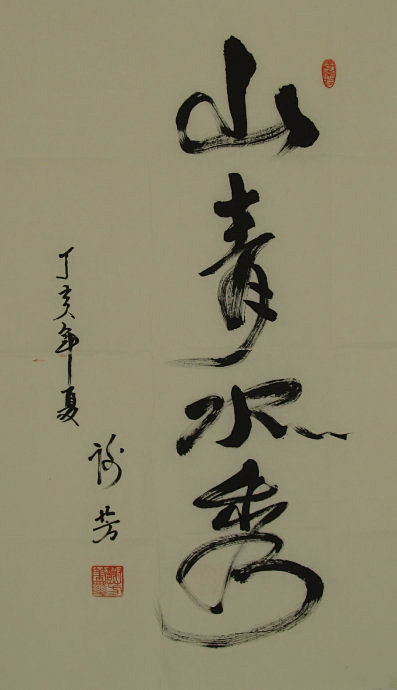 山青水秀
丁亥年夏
谢芳